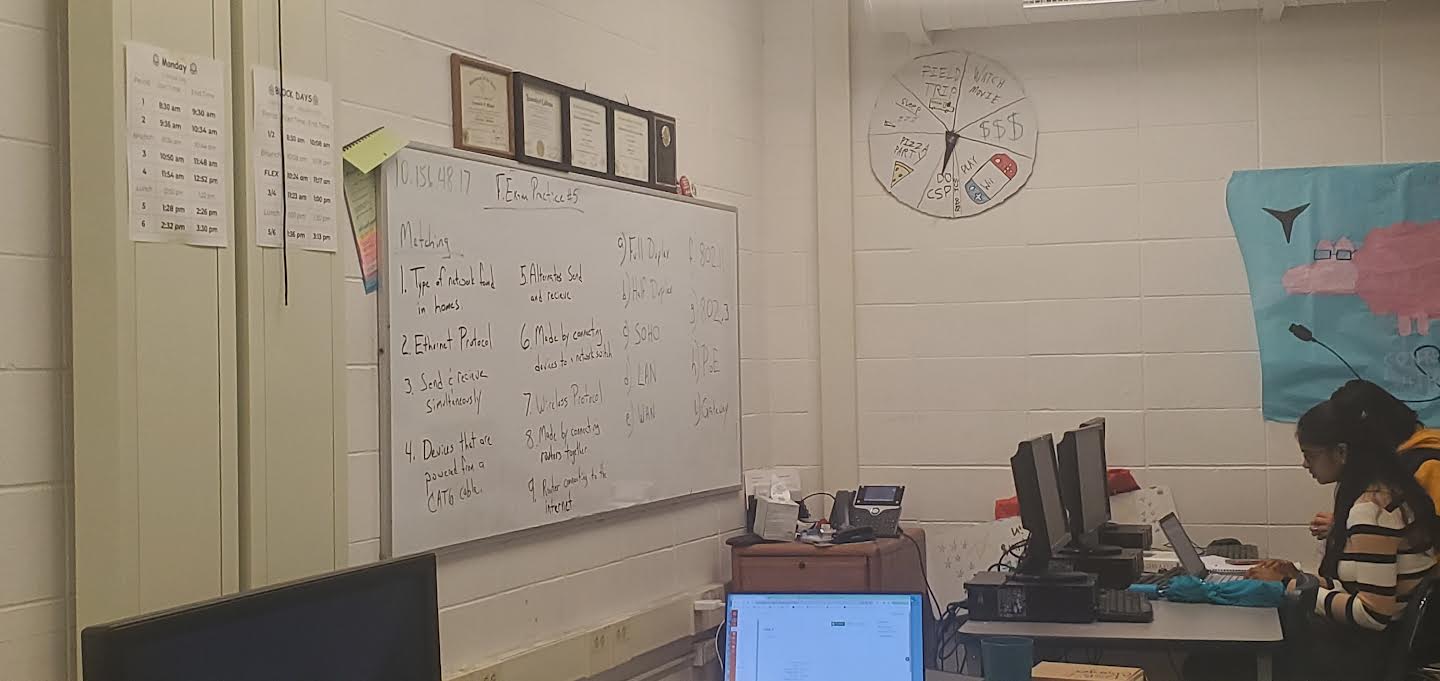 Monday
Period Start Time End Time
1 8:30 am 9:30 am
2 9:36 am 10:34 am
Brunch
3 10:50 am 11:48 am
4 11:54 am 12:52 pm
Lunch
5 1:28 pm 2:26 pm
6 2:32 pm 3:30 pm
BLOCK DAYS
1/2 8:30 am 10:08 am
Brunch
FLEX 10:24 am 11:17 am
3/4 11:23 am 1:00 pm
Lunch
5/6 1:35 pm 3:13 pm
10.156.48.17
F.Exam Practice #5
Matching
1. Type of network found
in homes.
2. Etherinet Protocol
3. Send & recieve
simultaneously
4. Devices that are
powered from a
CAT6 cable.
5. Alternates Send
and recieve
6. Made by connecting
devices to a network switch
7. Wireless Protocol
8. Made by connecting
routers together
9. Router connecting to the
internet
a) Full Duplex
b) Half Duplex
c) SOHO
d) LAN
e) WAN
f) 802.11
g) 802.3
h) PoE
Gateway
FIELD
TRIP
WATCH
MOVIE
$$$
PLAY
Wii
DO
CSP
PIZZA
PARTY
Sleep